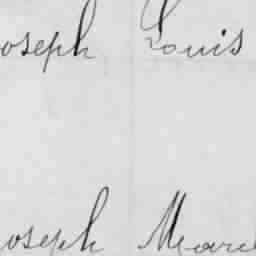 oseph Louis
oseph Marc